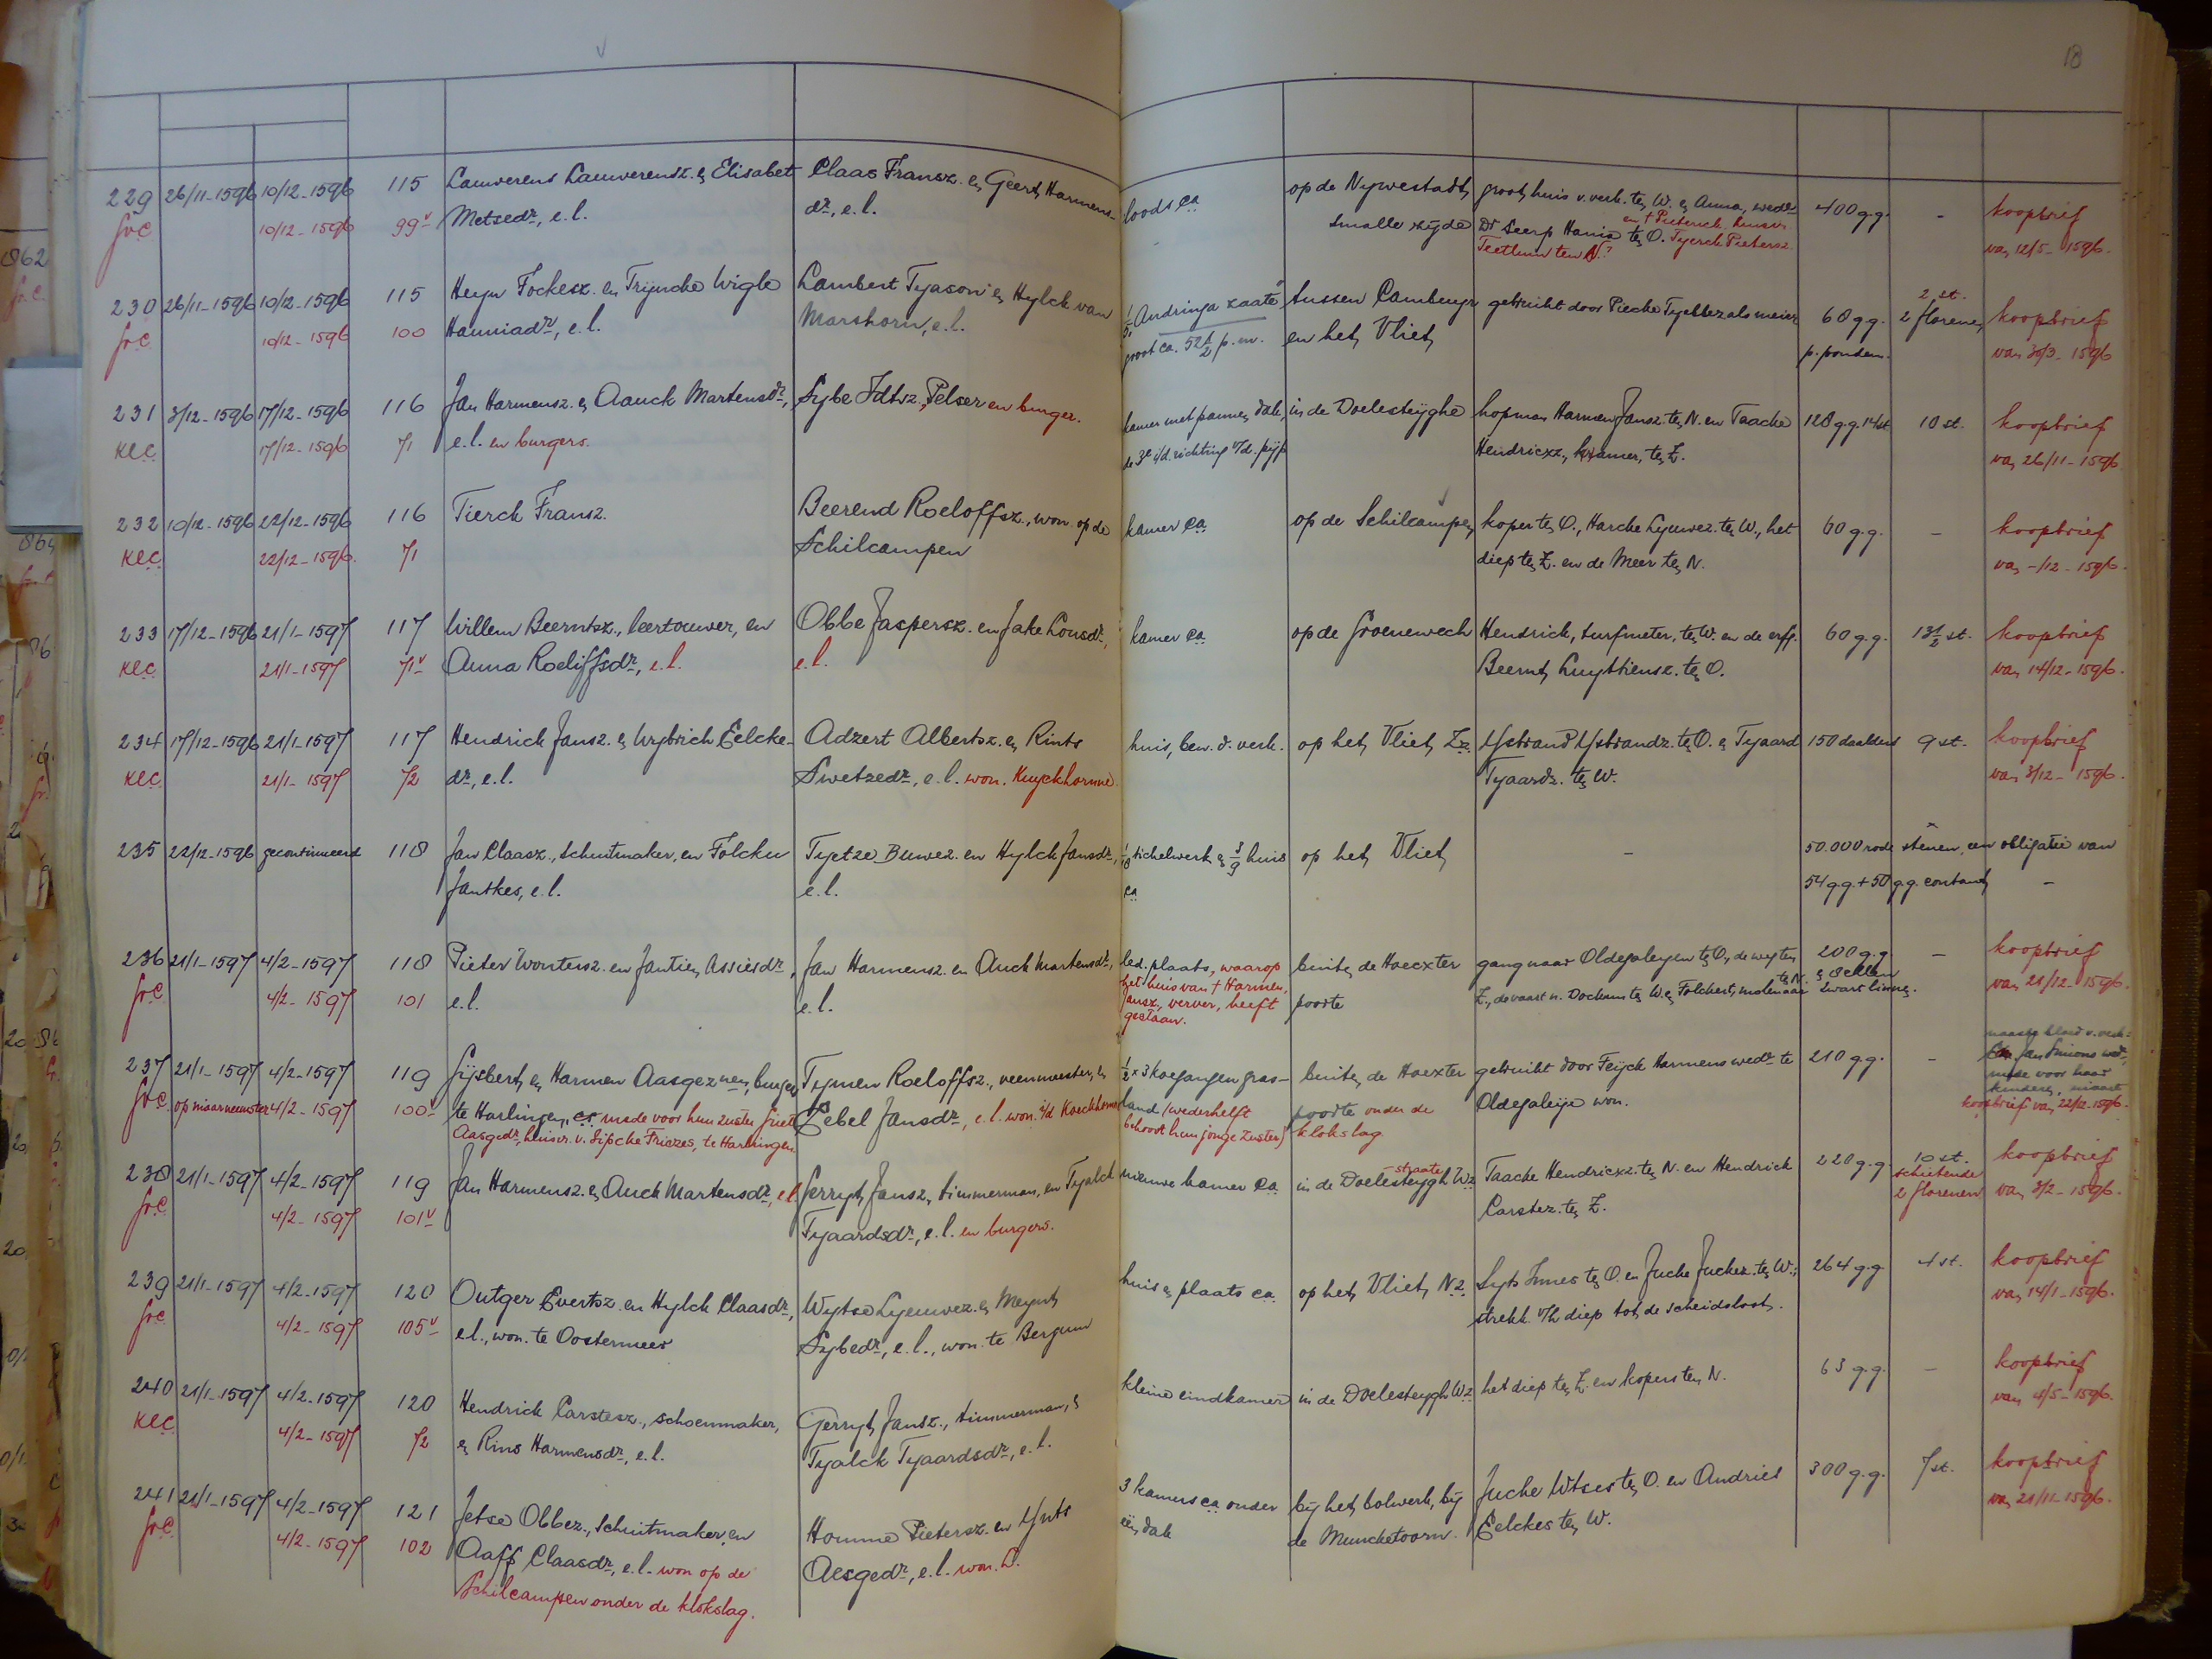 18
229 26/11-1596 10/12-1596 115 Lauwerens Lauwerensz. en Elisabet Claas Fransz. en Geert Harmens- loods ca op de Nywestadt, groot huis v. verk. ten W. en Anna, wede 400 g.g. - koopbrief
GrC 10/12-1596 99v Metsedr, e.l. dr, e.l. smalle zijde Dr Seerp Hania ten O. Tyerck Pietersz. van 12/5-1596.
en † Pieterick, huisvr.
Teetlum ten N.?
230 26/11-1596 10/12-1596 115 Heyn Fockesz. en Trijncke Wigle Lambert Tyason en Hylck van Andringa zaate tussen Cambuyr gebruikt door Piecke Tyebbez als meier 60 g.g. 2 st. 2 florenen koopbrief
GrC 10/12-1596 100 Hanniadr, e.l. Marshorn, e.l. groot ca. 52 1/2 p.m. en het Vliet p. pondem. van 30/3-1596
231 3/12-1596 17/12-1596 116 Jan Harmensz. en Aauck Martensdr, Sybe Idtsz., Pelser en burger. kamer met pannen dak, in de Doelesteijghe hopman Harmen Jansz. ten N. en Taacke 128 g.g. 14 st 10 st. koopbrief
KlC 17/12-1596 71 e.l. en burgers. de 3e i/d. richting v/d. pijp Hendricxz., kramer, ten Z. van 26/11-1596
232 10/12-1596 22/12-1596 116 Tierck Fransz. Beerend Roeloffsz., won. op de kamer ca op de Schilcampen koper ten O., Harcke Lyuwez. ten W., het 60 g.g. - koopbrief
KlC 22/12-1596. 71 Schilcampen diep ten Z. en de Meer ten N. van -/12-1596.
233 17/12-1596 21/1-1597 117 Willem Beerntsz., leertouwer, en Obbe Jaspersz. en Jake Lousdr, kamer ca op de Groenewech Hendrick, turfmeter, ten W. en de erff. 60 g.g. 13 1/2 st. koopbrief
KlC 21/1-1597 71v Anna Roeliffsdr, e.l. e.l. Beernt Luyttiensz. ten O. van 14/12-1596.
234 17/12-1596 21/1-1597 117 Hendrick Jansz. en Wybrich Eelcke- Adzert Albertsz. en Rints huis, bew. d. verk. op het Vliet Zz. Ysbrand Ysbrandz. ten O. en Tyaard 150 daalders 9 st. koopbrief
KlC 21/1-1597 72 dr, e.l. Swetzedr, e.l. won. Kuyckhorne Tyaardz. ten W. van 3/12-1596.
235 22/12-1596 gecontinueerd 118 Jan Claasz., Schuitmaker, en Folcku Tyetze Buwez. en Hylck Jansdr, tichelwerk en huis op het Vliet - 50.000 rode stenen, een obligatie van
Jantkes, e.l. e.l. ca 54 g.g. + 50 g.g. contant -
236 21/1-1597 4/2-1597 118 Pieter Woutersz. en Jantien Assiesdr, Jan Harmensz. en Auck Martensdr, led. plaats, waarop buiten de Hoecxter gang naar Oldegaleyen ten O., de weg ten 200 g.g. - koopbrief
GrC 4/2-1597 101 e.l. e.l. het huis van † Harmen Jansz., verver, heeft gestaan. poorte Z., de vaart n. Dockum ten W. en Folckert, molenaar ten N. zwart linnen. van 21/12-1596.
237 21/1-1597 4/2-1597 119 Gysbert en Harmen Aasgeznen, burgers Tymen Roeloffsz., veenmeester, en 1/2 x 3 koegangen gras- buiten de Hoexter gebruikt door Feijck Harmens wedr te 210 g.g. - naaste bloed v. verk.:
GrC op niaarneemster 4/2-1597 100v te Harlingen, es. mede voor hun zuster Griet Zebel Jansdr, e.l. won. i/d Koeckhorne land (wederhelft poorte onder de Oldegaleije won. Jan Simons wed.
Aasgedr, huisvr. v. Sipcke Friezes, te Harlingen behoort hun jonge zuster) klokslag mede voor haar kinderen, niaart
koopbrief van 22/12-1596.
238 21/1-1597 4/2-1597 119 Jan Harmensz. en Auck Martensdr, e.l. Gerryt Jansz., timmerman, en Tyalck nieuwe kamer ca in de Doelesteygh Wz -straate Taacke Hendricxz. ten N. en Hendrick 220 g.g. 10 st. koopbrief
GrC 4/2-1597 101v Tyaardsdr, e.l. en burgers. Carstez. ten Z. schietende 2 florenen van 3/2-1596.
239 21/1-1597 4/2-1597 120 Outger Evertsz. en Hylck Claasdr, Wytse Lyeuwez. en Meynt huis en plaats ca op het Vliet Nz. Syts Innes ten O. en Jucke Juckez. ten W.; 264 g.g. 4 st. koopbrief
GrC 4/2-1597 105v e.l., won. te Oostermeer Sybedr, e.l., won. te Bergum strekk. v/h diep tot de scheidsloot. van 14/1-1596.
240 21/1-1597 4/2-1597 120 Hendrick Carstesz., schoenmaker, Gerryt Jansz., timmerman, en kleine eindkamer in de Doelesteygh Wz het diep ten Z. en kopers ten N. 63 g.g. - koopbrief
KlC 4/2-1597 72 en Rins Harmensdr, e.l. Tyalck Tyaardsdr, e.l. van 4/5-1596.
241 21/1-1597 4/2-1597 121 Jetse Obbez., Schuitmaker, en Homme Pietersz. en Ynts 3 kamers ca onder bij het bolwerk, bij Jucke Wtses ten O. en Andries 300 g.g. 7 st. koopbrief
GrC 4/2-1597 102 Aaff Claasdr, e.l. won op de Aesgedr, e.l. won. L. één dak de Muncketoorn. Eelckes ten W. van 21/11-1596.
Schilcampen onder de klokslag.